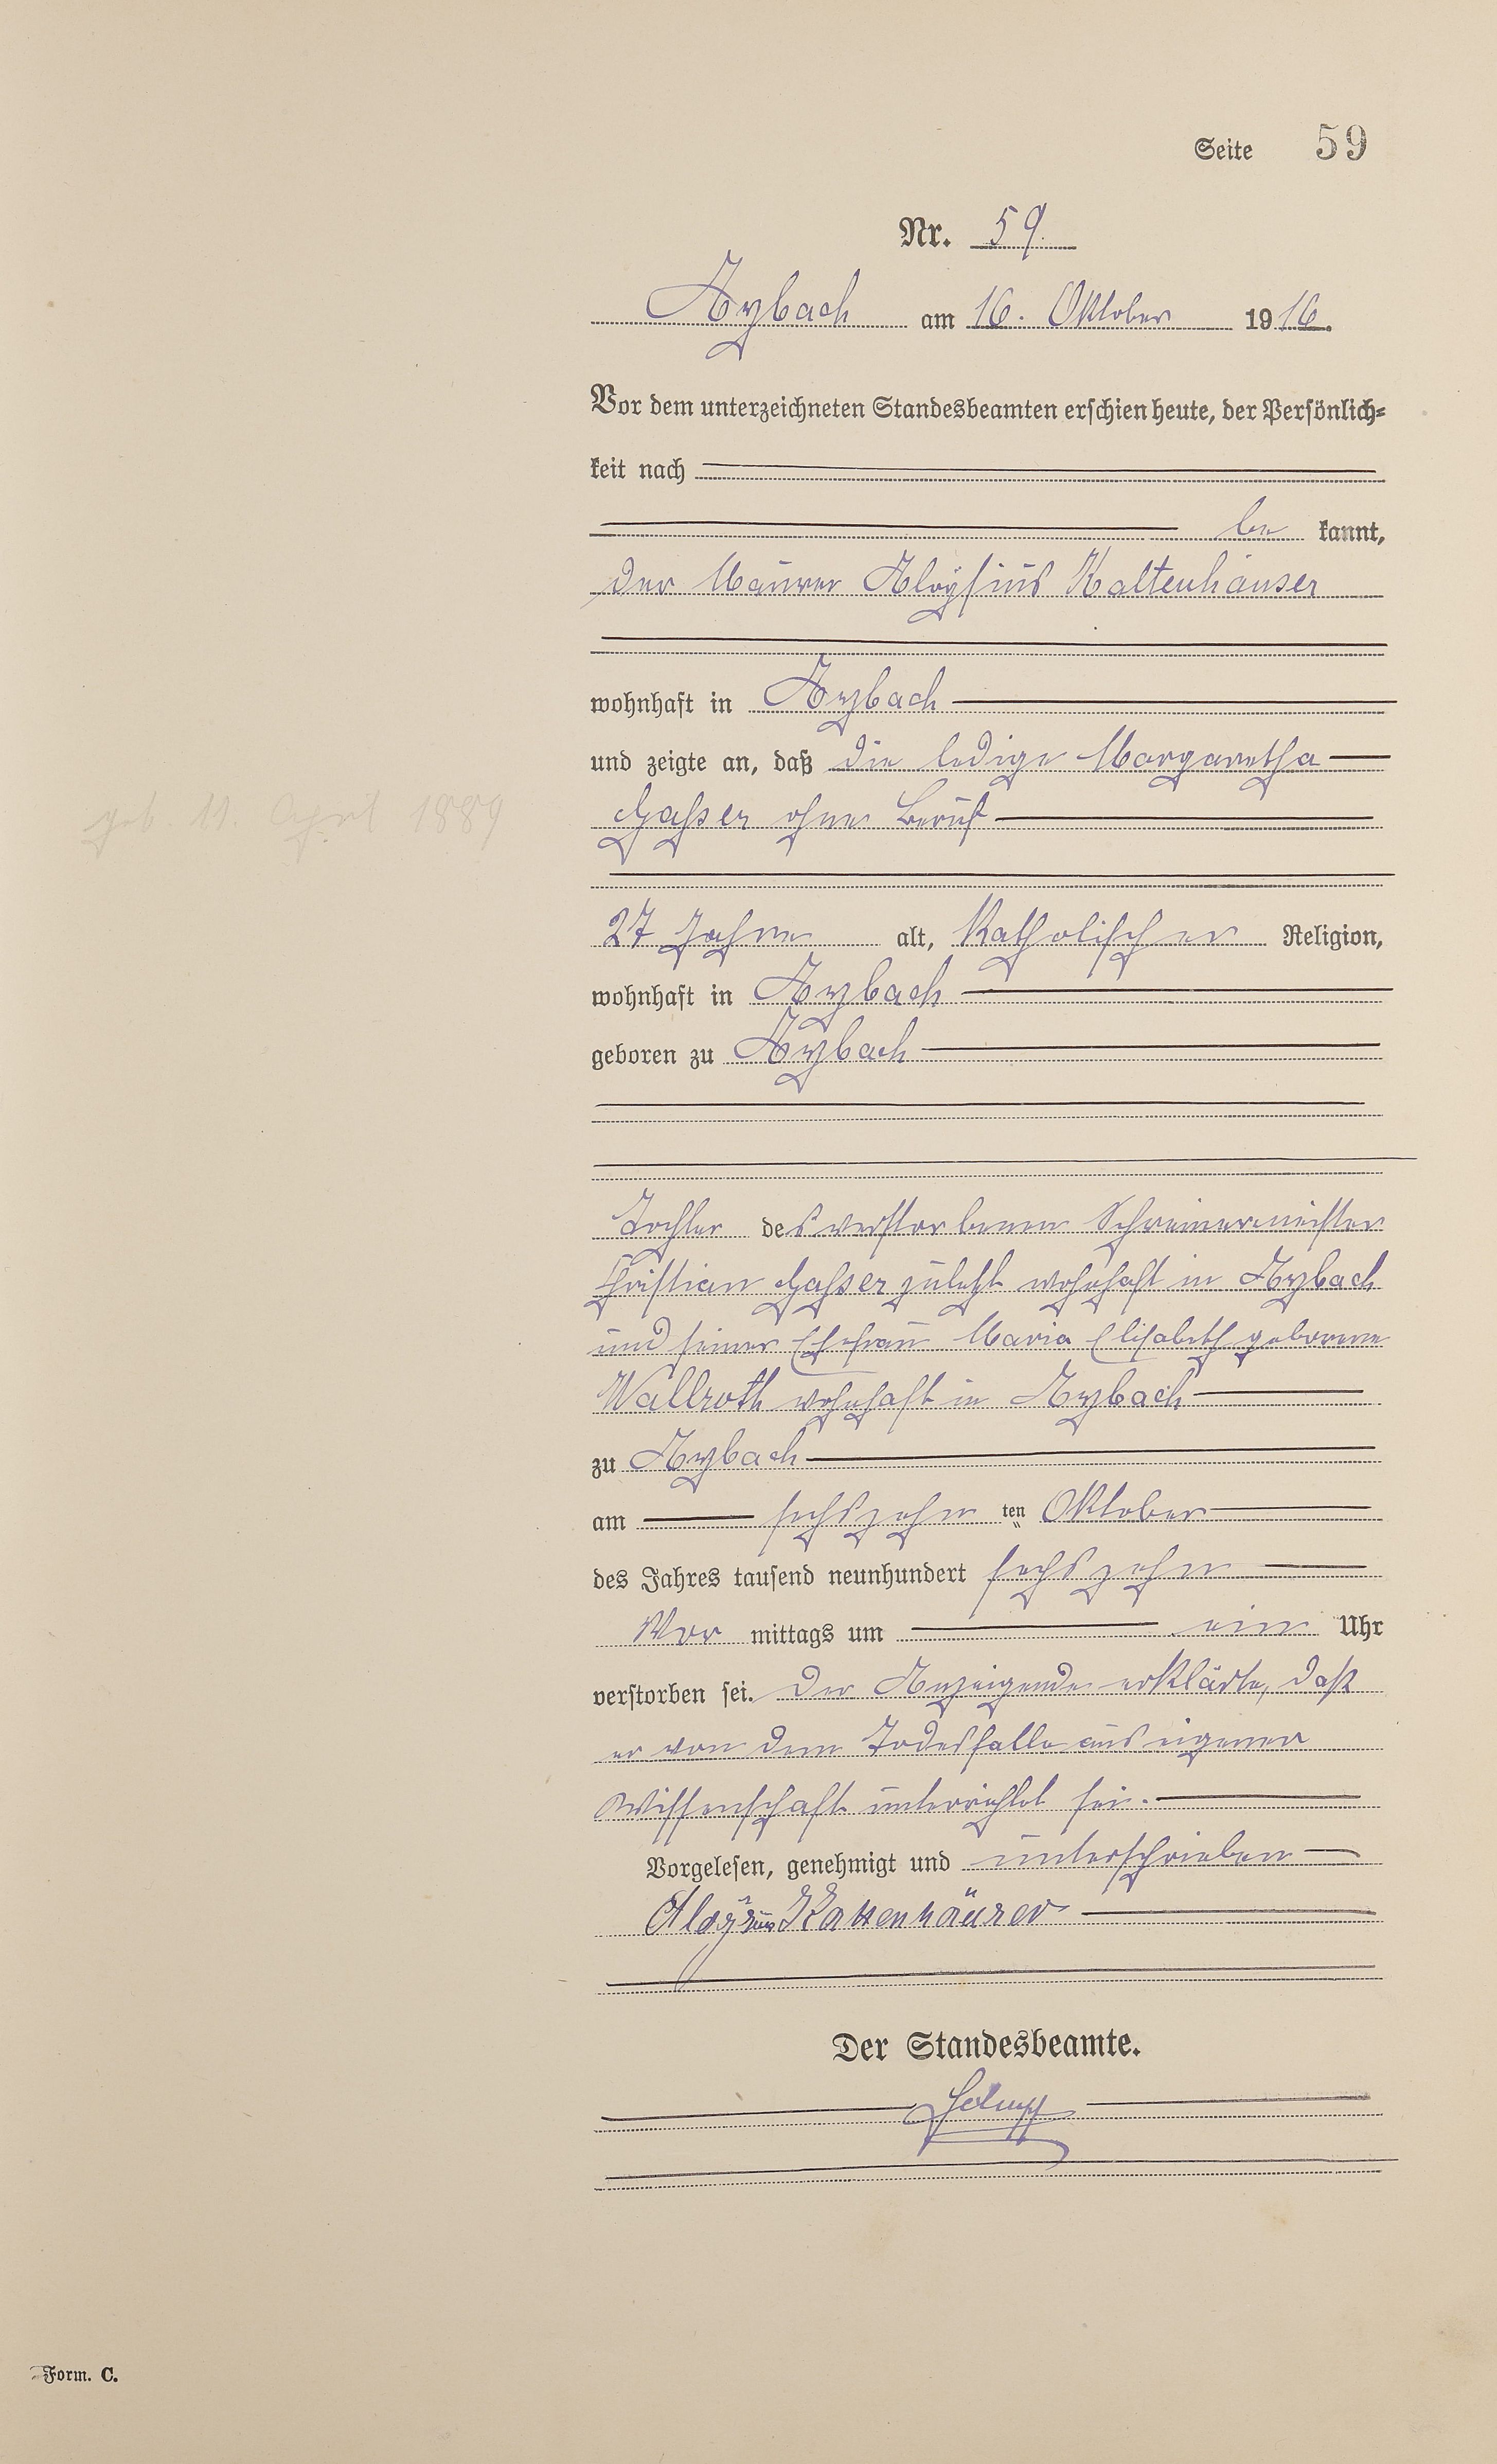 Seite 59
Nr. 59.
Arzbach am 16. Oktober 1916.
Vor dem unterzeichneten Standesbeamten erschien heute, der Persönlich-
keit nach
be kannt,
der Maurer Aloysius Kaltenhäuser
wohnhaft in Arzbach
und zeigte an, daß die ledige Margaretha
geb. 11. April 1889
Gasser ohne Beruf
27 Jahre alt, Katholischer Religion,
wohnhaft in Arzbach
geboren zu Arzbach
Tochter des verstorbenen Schreinermeister
Christian Gasser zuletzt wohnhaft in Arzbach
und seiner Ehefrau Maria Elisabeth geborene
Wallroth wohnhaft in Arzbach
zu Arzbach
am sechszehn ten Oktober
des Jahres tausend neunhundert sechszehn
Vor mittags um ein Uhr
verstorben sei. Der Anzeigende erklärte, daß
er von dem Todesfalle aus eigener
Wissenschaft unterrichtet sei.
Vorgelesen, genehmigt und unterschrieben
Aloysius Kaltenhäuser
Der Standesbeamte.
Form. C.